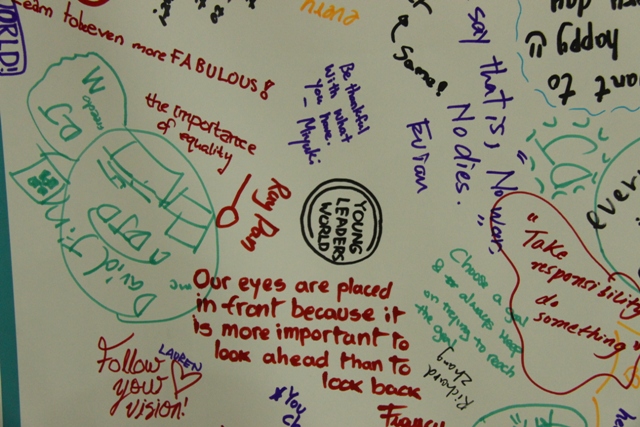 WORLD!
Learn to be even more FABULOUS!
every
Same!
say that is, "No wars
No dies."
Evian
happy
you day
want to
Be thankful
with what
you have.
- Mayuki
M
DJ
the importance
of equality
Ray Dan
YOUNG
LEADERS
WORLD
David JiKM
every
"Take
responsibility
do
something"
Choose a goal
& always keep
on trying to reach
the goal
Richard
Zhang
Our eyes are placed
in front because it
is more important to
look ahead than to
look back
LAUREN
Follow
your
vision!
You